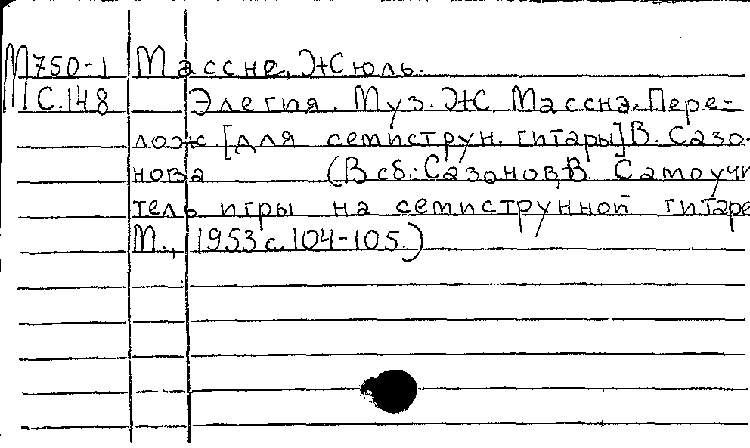 М750-1 Массне, Жюль.
С.148 Элегия. Муз. Ж. Массне. Пере-
лож. [для семиструн. гитары] В. Сазо-
нова (В сб.: Сазонов, В. Самоучи
тель игры на семиструнной гитаре
М., 1953 с. 104-105.)